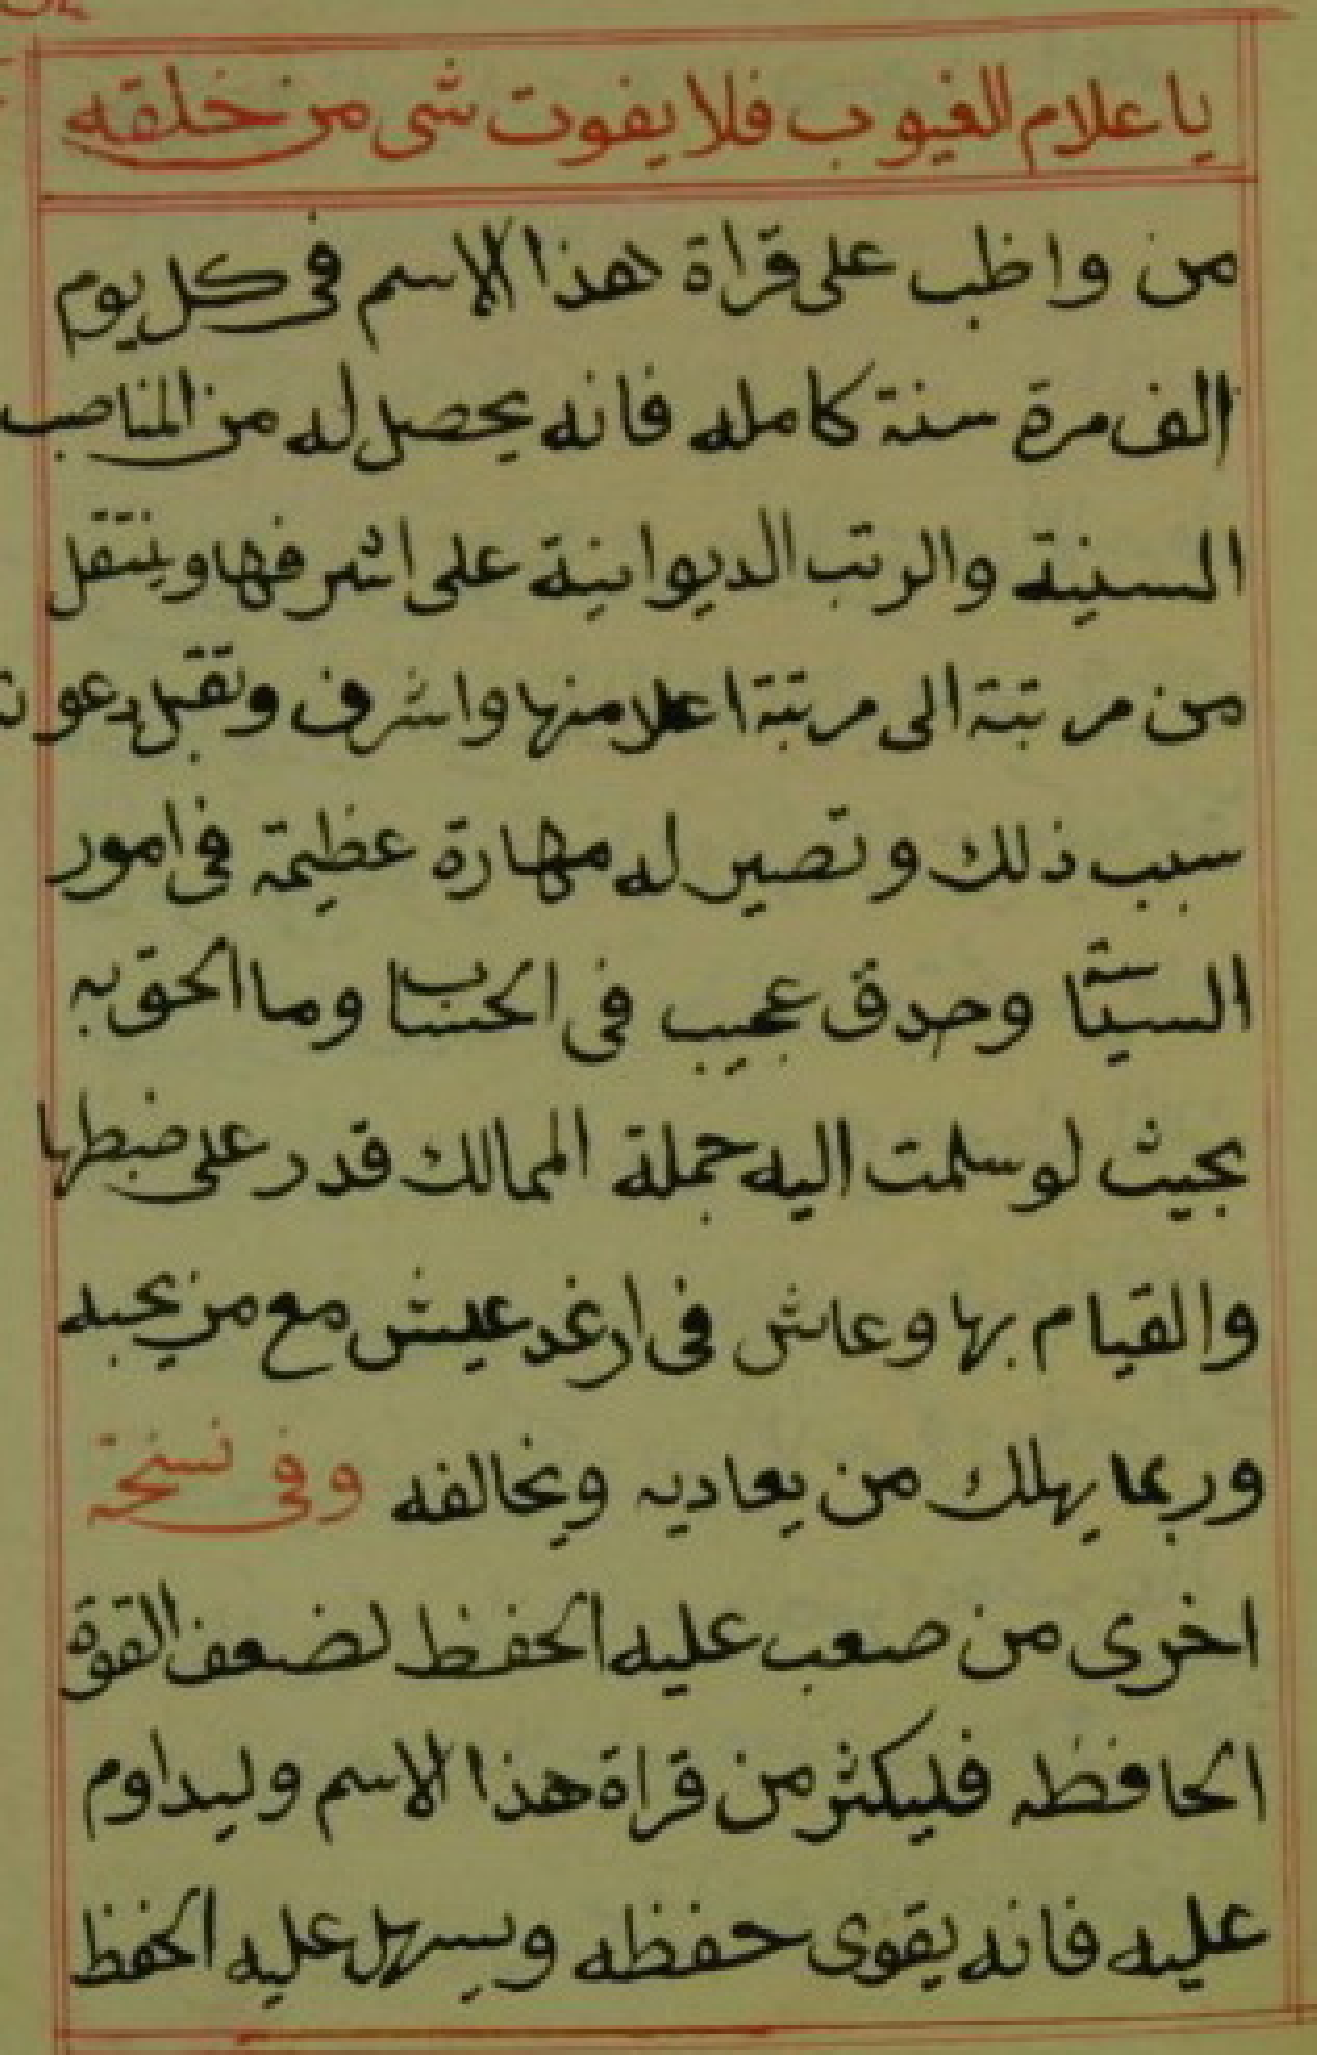 يا علام الغيوب فلا يفوت شى من خلقه
من واظب على قراة هذا الاسم فى كل يوم
الف مرة سنة كامله فانه يحصل له من المناصب
السنية والرتب الديوانية على اشرفها وينتقل
من مرتبة الى مرتبة اعلا منها واشرف وتقبل
سبب ذلك وتصير له مهارة عظيمة فى امور
وحدق عجيب فى الحساب وما الحق به
بحيث لو سلمت اليه جملة الممالك قدر على ضبطها
والقيام بها وعاش فى ارغد عيش مع من يحبه
وربما يهلك من يعاديه ويخالفه وفى نسخة
اخرى من صعب عليه الحفظ لضعف القوة
الحافظه فليكثر من قراة هذا الاسم وليداوم
عليه فانه يقوى حفظه ويسهل عليه الحفظ